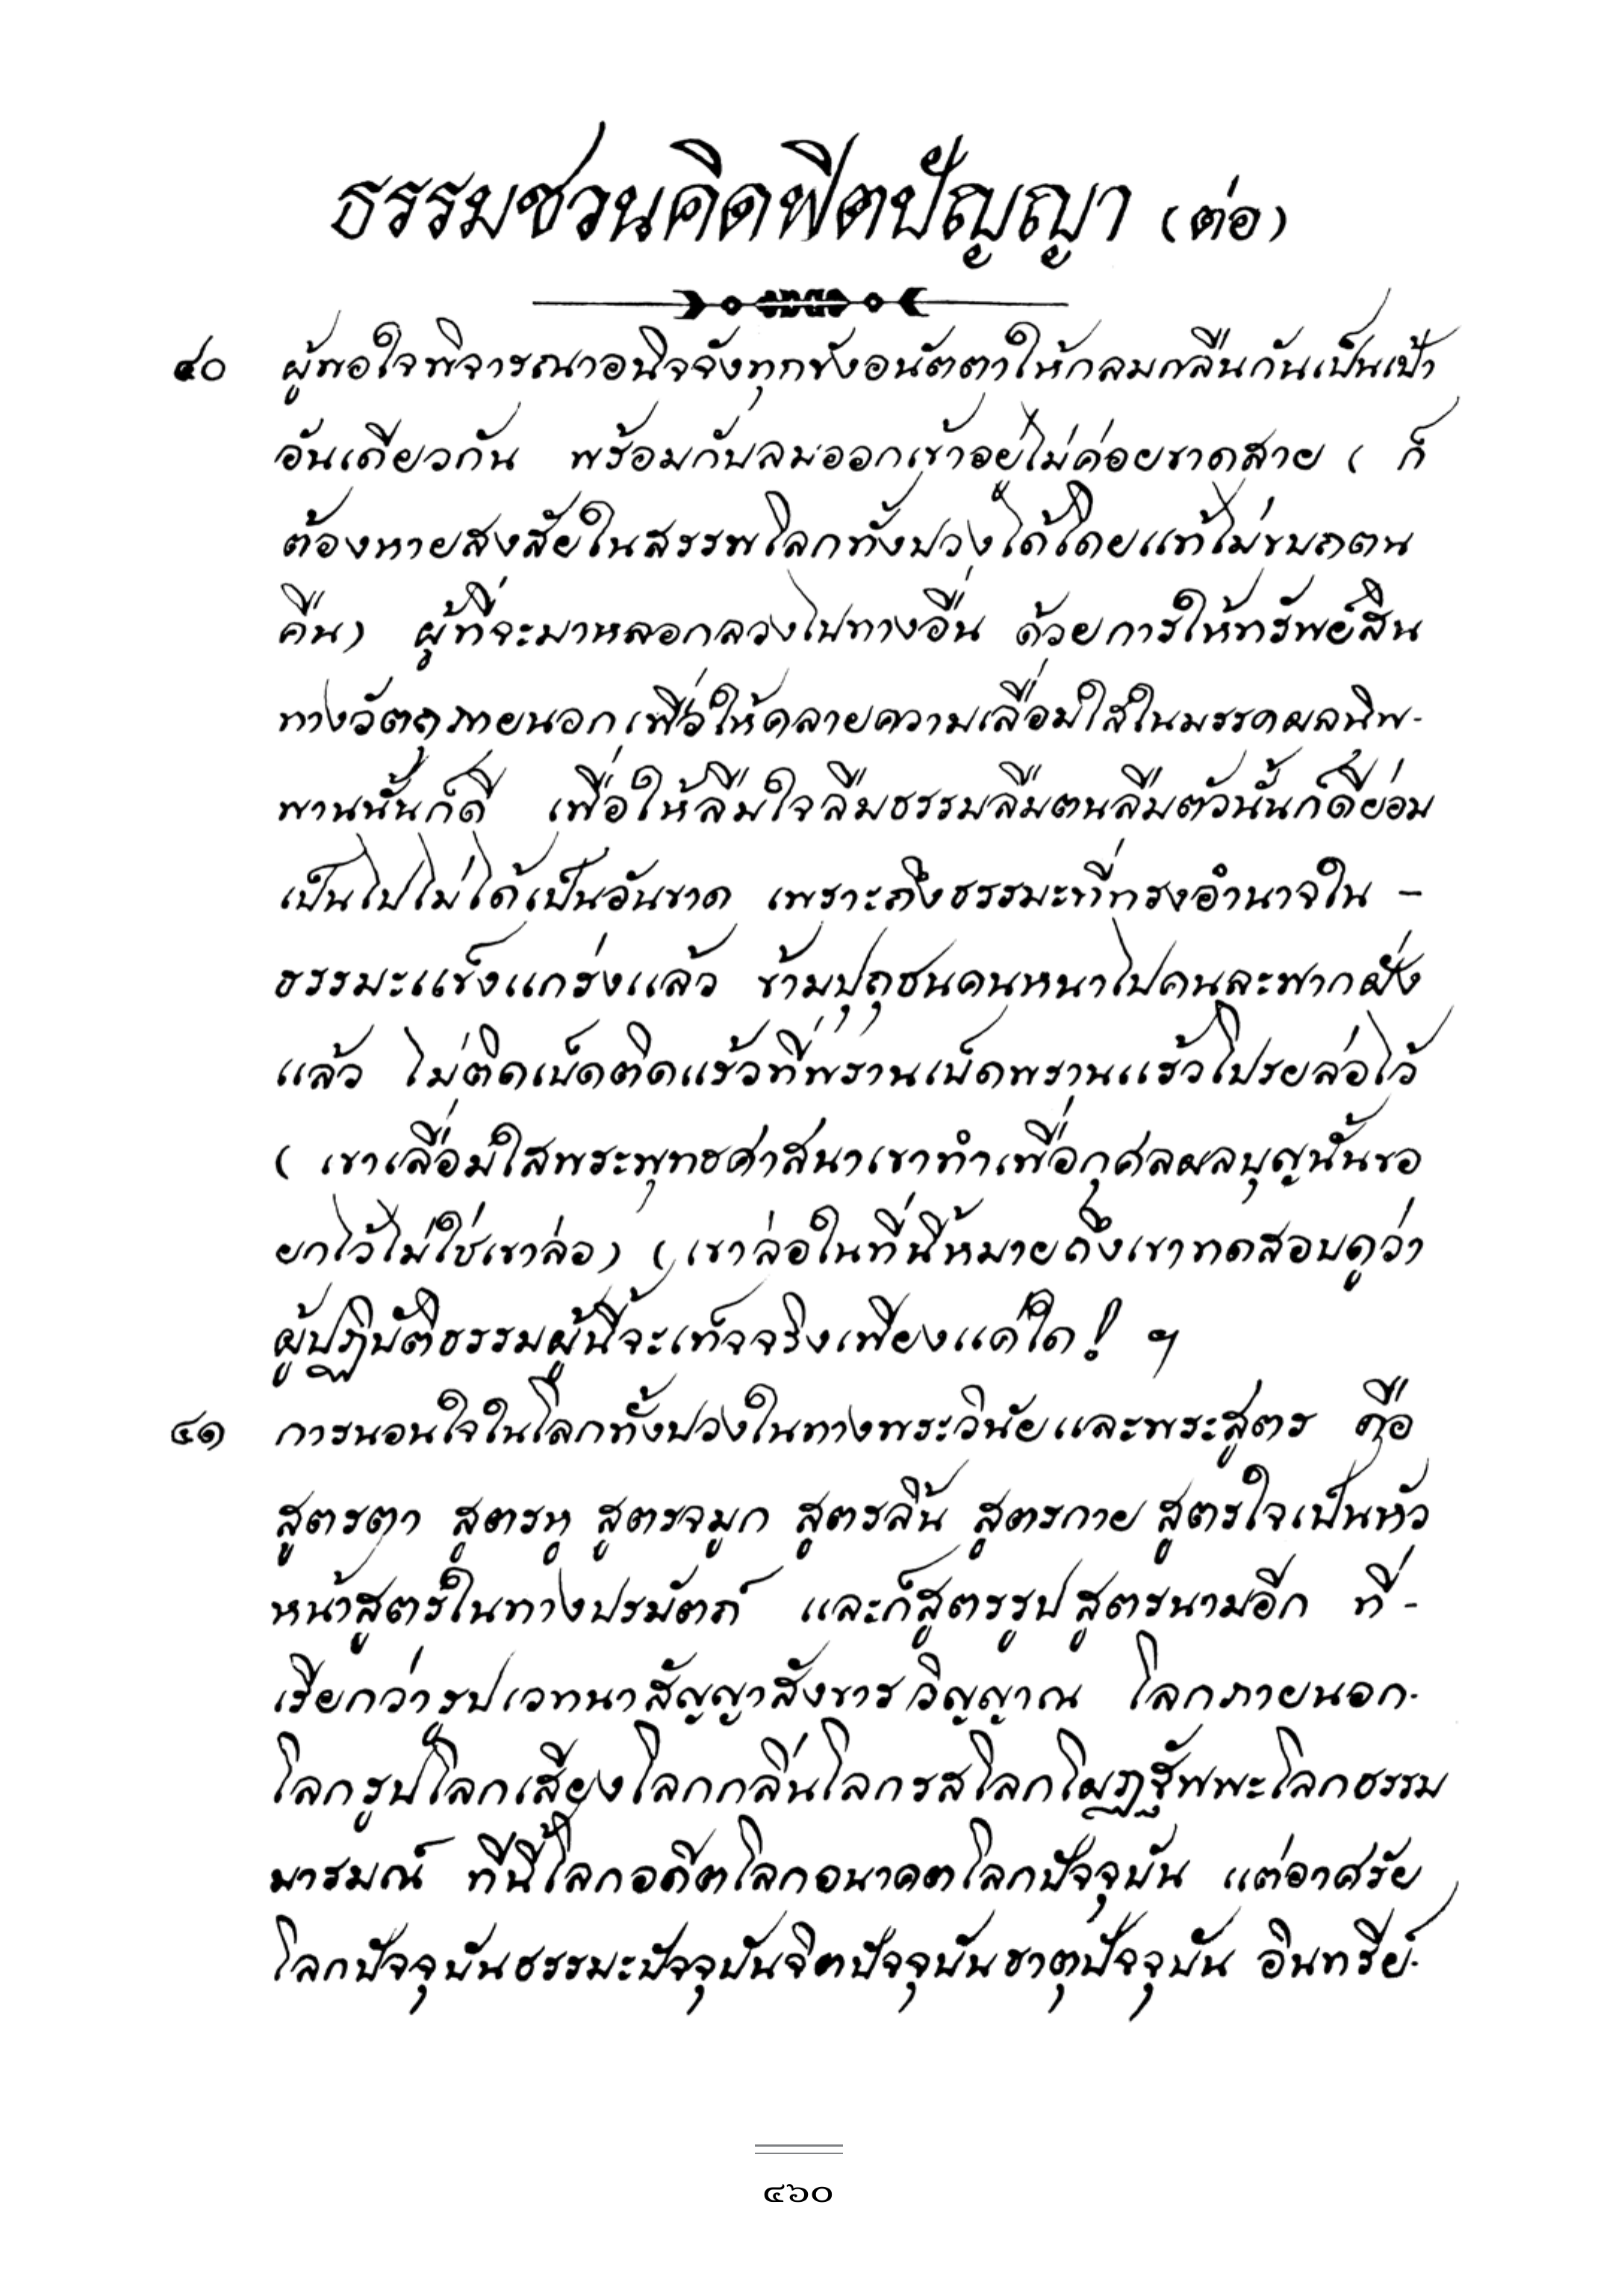 ธรรมชวนคิดฟิตปัญญา (ต่อ)
๔๐ ผู้พอใจพิจารณาอนิจจังทุกขังอนัตตาให้กลมกลืนกันเป็นเป้า
อันเดียวกัน พร้อมกับลมออกเข้าอยู่ไม่ค่อยขาดสาย ( ก็
ต้องหายสงสัยในสรรพโลกทั้งปวงได้โดยแท้ไม่ขบถตน
คืน) ผู้ที่จะมาหลอกลวงไปทางอื่น ด้วยการให้ทรัพย์สิน
ทางวัตถุภายนอกเพื่อให้คลายความเลื่อมใสในมรรคผลนิพ-
พานนั้นก็ดี เพื่อให้ลืมใจลืมธรรมลืมตนลืมตัวนั้นก็ดีย่อม
เป็นไปไม่ได้เป็นอันขาด เพราะถึงธรรมะที่ทรงอำนาจใน -
ธรรมะแข็งแกร่งแล้ว ข้ามปุถุชนคนหนาไปคนละฟากฝั่ง
แล้ว ไม่ติดเบ็ดติดแร้วที่พรานเบ็ดพรานแร้วโปรยล่อไว้
( เขาเลื่อมใสพระพุทธศาสนาเขาทำเพื่อกุศลผลบุญนั้นขอ
ยกไว้ไม่ใช่เขาล่อ) ( เขาล่อในที่นี้หมายถึงเขาทดสอบดูว่า
ผู้ปฏิบัติธรรมผู้นี้จะเท็จจริงเพียงแค่ใด! ฯ
๔๑ การนอนใจในโลกทั้งปวงในทางพระวินัยและพระสูตร คือ
สูตรตา สูตรหู สูตรจมูก สูตรลิ้น สูตรกาย สูตรใจเป็นหัว
หน้าสูตรในทางปรมัตถ์ และก็สูตรรูปสูตรนามอีก ที่ -
เรียกว่ารูปเวทนาสัญญาสังขารวิญญาณ โลกภายนอก-
โลกรูปโลกเสียงโลกกลิ่นโลกรสโลกโผฏฐัพพะโลกธรรม
มารมณ์ ทีนี้โลกอดีตโลกอนาคตโลกปัจจุบัน แต่อาศรัย
โลกปัจจุบันธรรมะปัจจุบันจิตปัจจุบันธาตุปัจจุบัน อินทรีย์-
๔๖๐